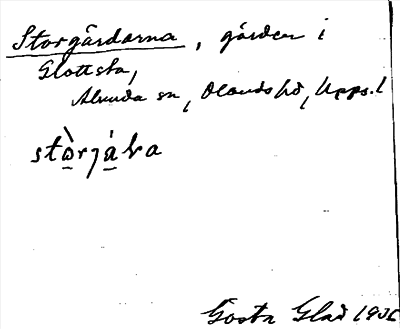 Storgårdarna, gården i
Glottsta,
Alunda sn, Olands hd, Upps. l
stò̱rjá̱ka
Gösta Glad